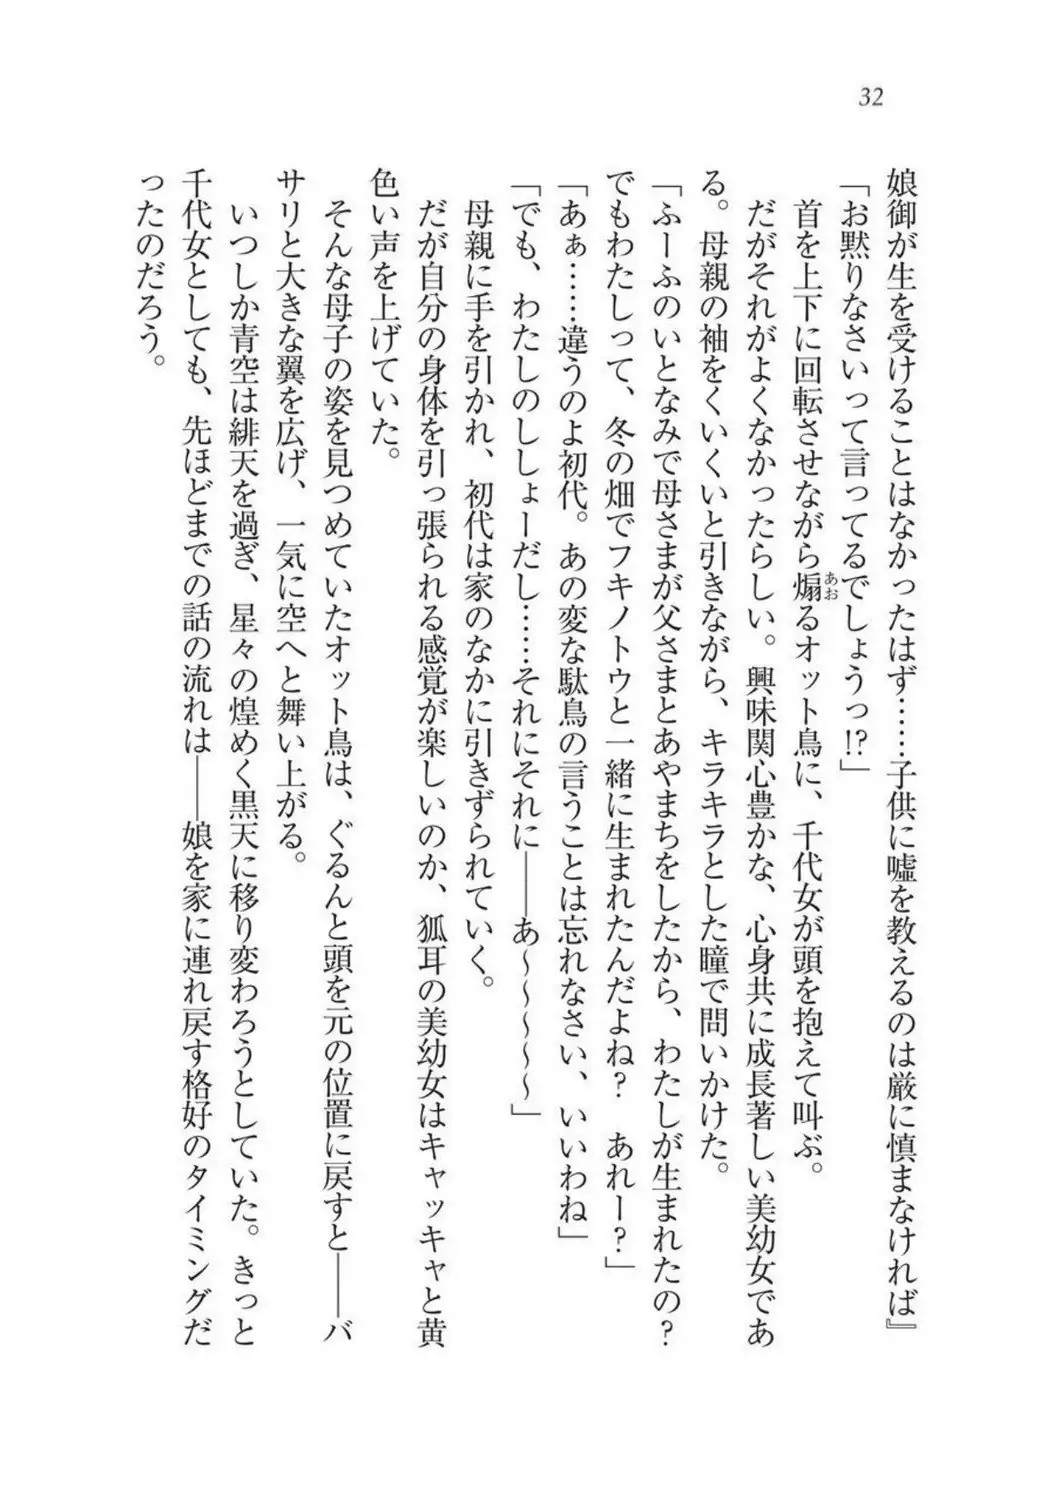 32
娘御が生を受けることはなかったはず……子供に嘘を教えるのは厳に慎まなければ』
「お黙りなさいって言ってるでしょうっ!?」
　首を上下に回転させながら煽るオット鳥に、千代女が頭を抱えて叫ぶ。
あお
　だがそれがよくなかったらしい。興味関心豊かな、心身共に成長著しい美幼女であ
る。母親の袖をくいくいと引きながら、キラキラとした瞳で問いかけた。
「ふーふのいとなみで母さまが父さまとあやまちをしたから、わたしが生まれたの？
でもわたしって、冬の畑でフキノトウと一緒に生まれたんだよね？　あれー？」
「あぁ……違うのよ初代。あの変な駄鳥の言うことは忘れなさい、いいわね」
「でも、わたしのししょーだし……それにそれに――あ～～～～～」
　母親に手を引かれ、初代は家のなかに引きずられていく。
　だが自分の身体を引っ張られる感覚が楽しいのか、狐耳の美幼女はキャッキャと黄
色い声を上げていた。
　そんな母子の姿を見つめていたオット鳥は、ぐるんと頭を元の位置に戻すと――バ
サリと大きな翼を広げ、一気に空へと舞い上がる。
　いつしか青空は緋天を過ぎ、星々の煌めく黒天に移り変わろうとしていた。きっと
千代女としても、先ほどまでの話の流れは――娘を家に連れ戻す格好のタイミングだ
ったのだろう。